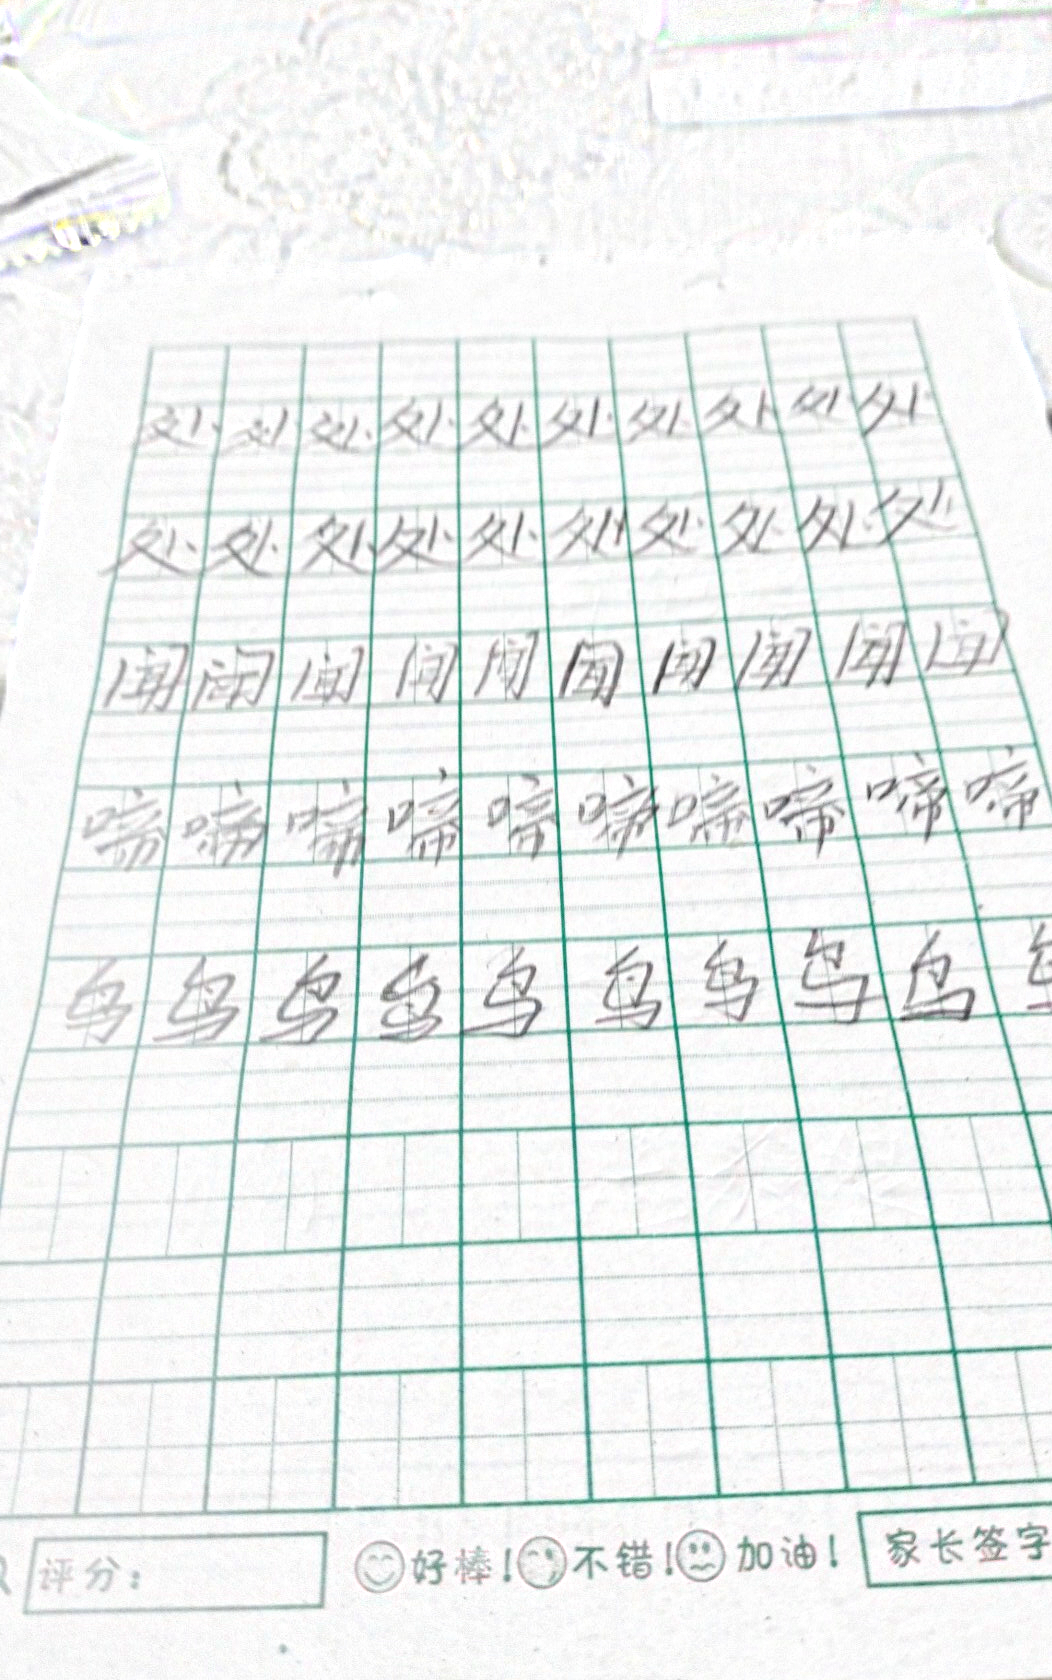 处处处处处处处处处处
处处处处处处处处处处
闻闻闻闻闻闻闻闻闻闻
啼啼啼啼啼啼啼啼啼啼
鸟鸟鸟鸟鸟鸟鸟鸟鸟
评分： 好棒！ 不错！ 加油！ 家长签字